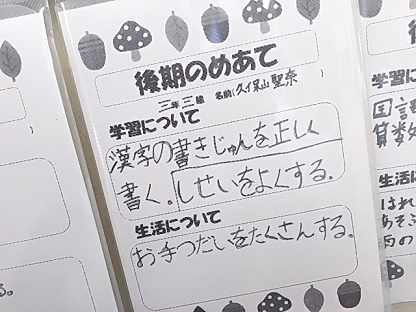 後期のめあて
三年三組 名前(久保山聖奈)
学習について
漢字の書きじゅんを正しく
書く。しせいをよくする。
生活について
お手つだいをたくさんする。
る。
学習に
国語
算数
生活に
はれ
あそ
雨の